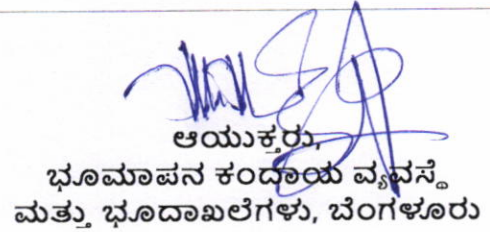 ಆಯುಕ್ತರು,
ಭೂಮಾಪನ ಕಂದಾಯ ವ್ಯವಸ್ಥೆ
ಮತ್ತು ಭೂದಾಖಲೆಗಳು, ಬೆಂಗಳೂರು